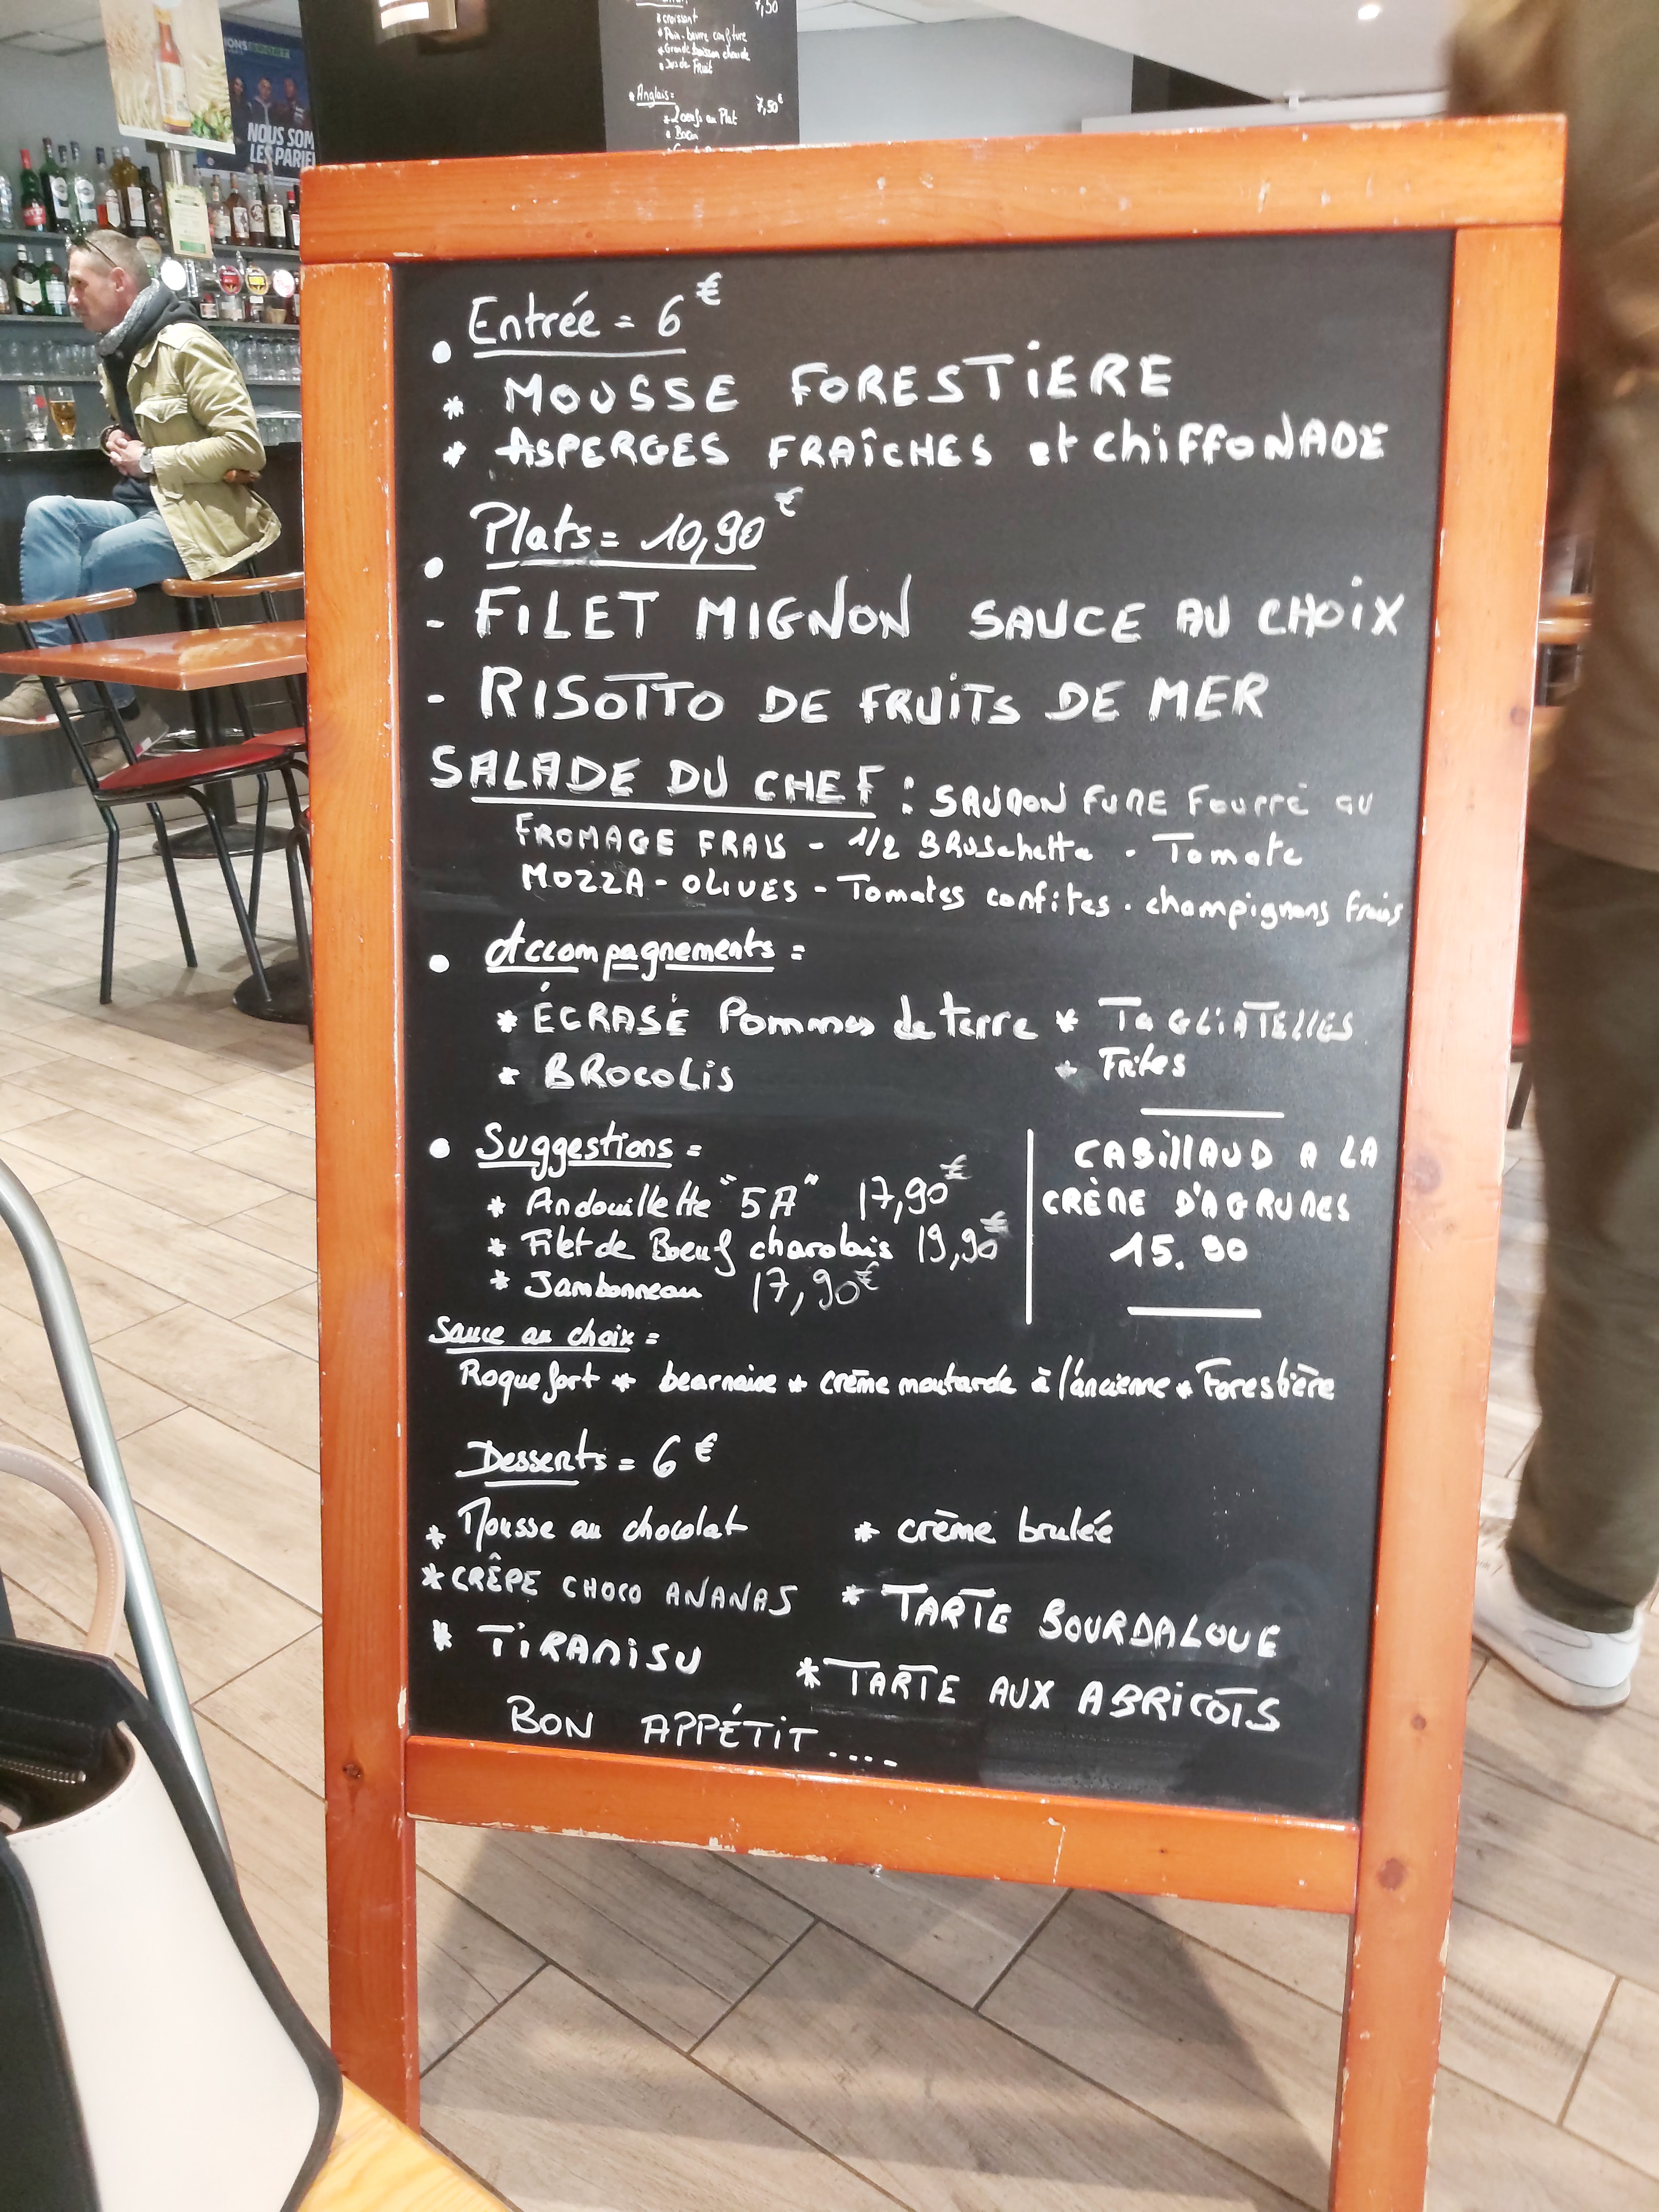 7,50
* croissant
* Pain-beurre confiture
* Grande boisson chaude
* Jus de Fruit
* Anglais = 7,50€
* 2 oeufs au Plat
* Bacon
NOUS SOM
LES PARIE
Entrée = 6€
* MOUSSE FORESTIERE
* ASPERGES FRAÎCHES et chiffONADE
Plats = 10,90€
- FILET MIGNON SAUCE AU CHOIX
- RISOTTO DE FRUITS DE MER
SALADE DU CHEF : SAUMON FUME Fourré au
FROMAGE FRAIS - 1/2 BRuschetta - Tomate
MOZZA - OLIVES - Tomates confites - champignons frais
Accompagnements =
* ÉCRASÉ Pommes de terre * TAGLIATELLES
* BROCOLIS * Frites
Suggestions =
* Andouillette "5A" 17,90€
* Filet de Boeuf charolais 19,90€
* Jambonneau 17,90€
CABillAUD A LA
CRÈME D'AGRUMES
15.90
Sauce au choix =
Roquefort * bearnaise * crème moutarde à l'ancienne * Forestière
Desserts = 6€
* Mousse au chocolat * crème brulée
* CRÊPE CHOCO ANANAS * TARTE BOURDALOUE
* TIRAMISU * TARTE AUX ABRICOTS
BON APPÉTIT ....